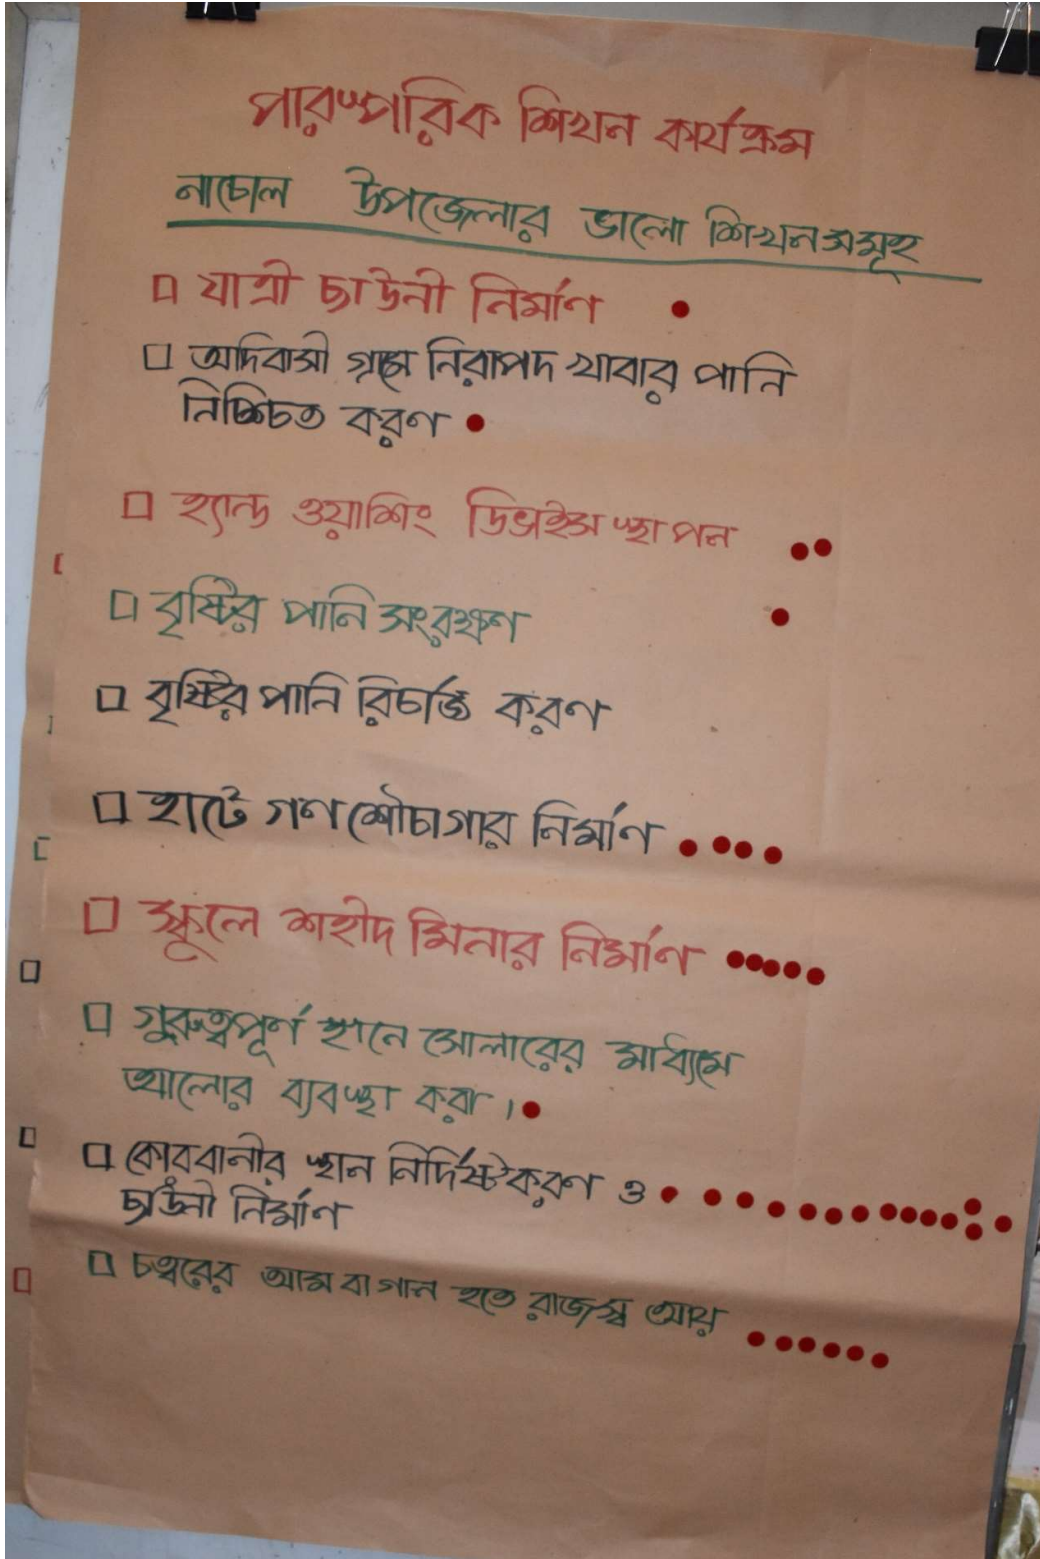 পারস্পরিক শিখন কার্যক্রম
নাচোল উপজেলার ভালো শিখনসমূহ
□ যাত্রী ছাউনী নির্মাণ
□ আদিবাসী গ্রামে নিরাপদ খাবার পানি
নিশ্চিত করণ
□ হ্যান্ড ওয়াশিং ডিভাইস স্থাপন
□ বৃষ্টির পানি সংরক্ষণ
□ বৃষ্টির পানি রিচার্জ করণ
□ হাটে গণশৌচাগার নির্মাণ
□ স্কুলে শহীদ মিনার নির্মাণ
□ গুরুত্বপূর্ণ স্থানে সোলারের মাধ্যমে
আলোর ব্যবস্থা করা।
□ কোরবানীর স্থান নির্দিষ্টকরণ ও
ছাউনী নির্মাণ
□ চত্বরের আম বাগান হতে রাজস্ব আয়